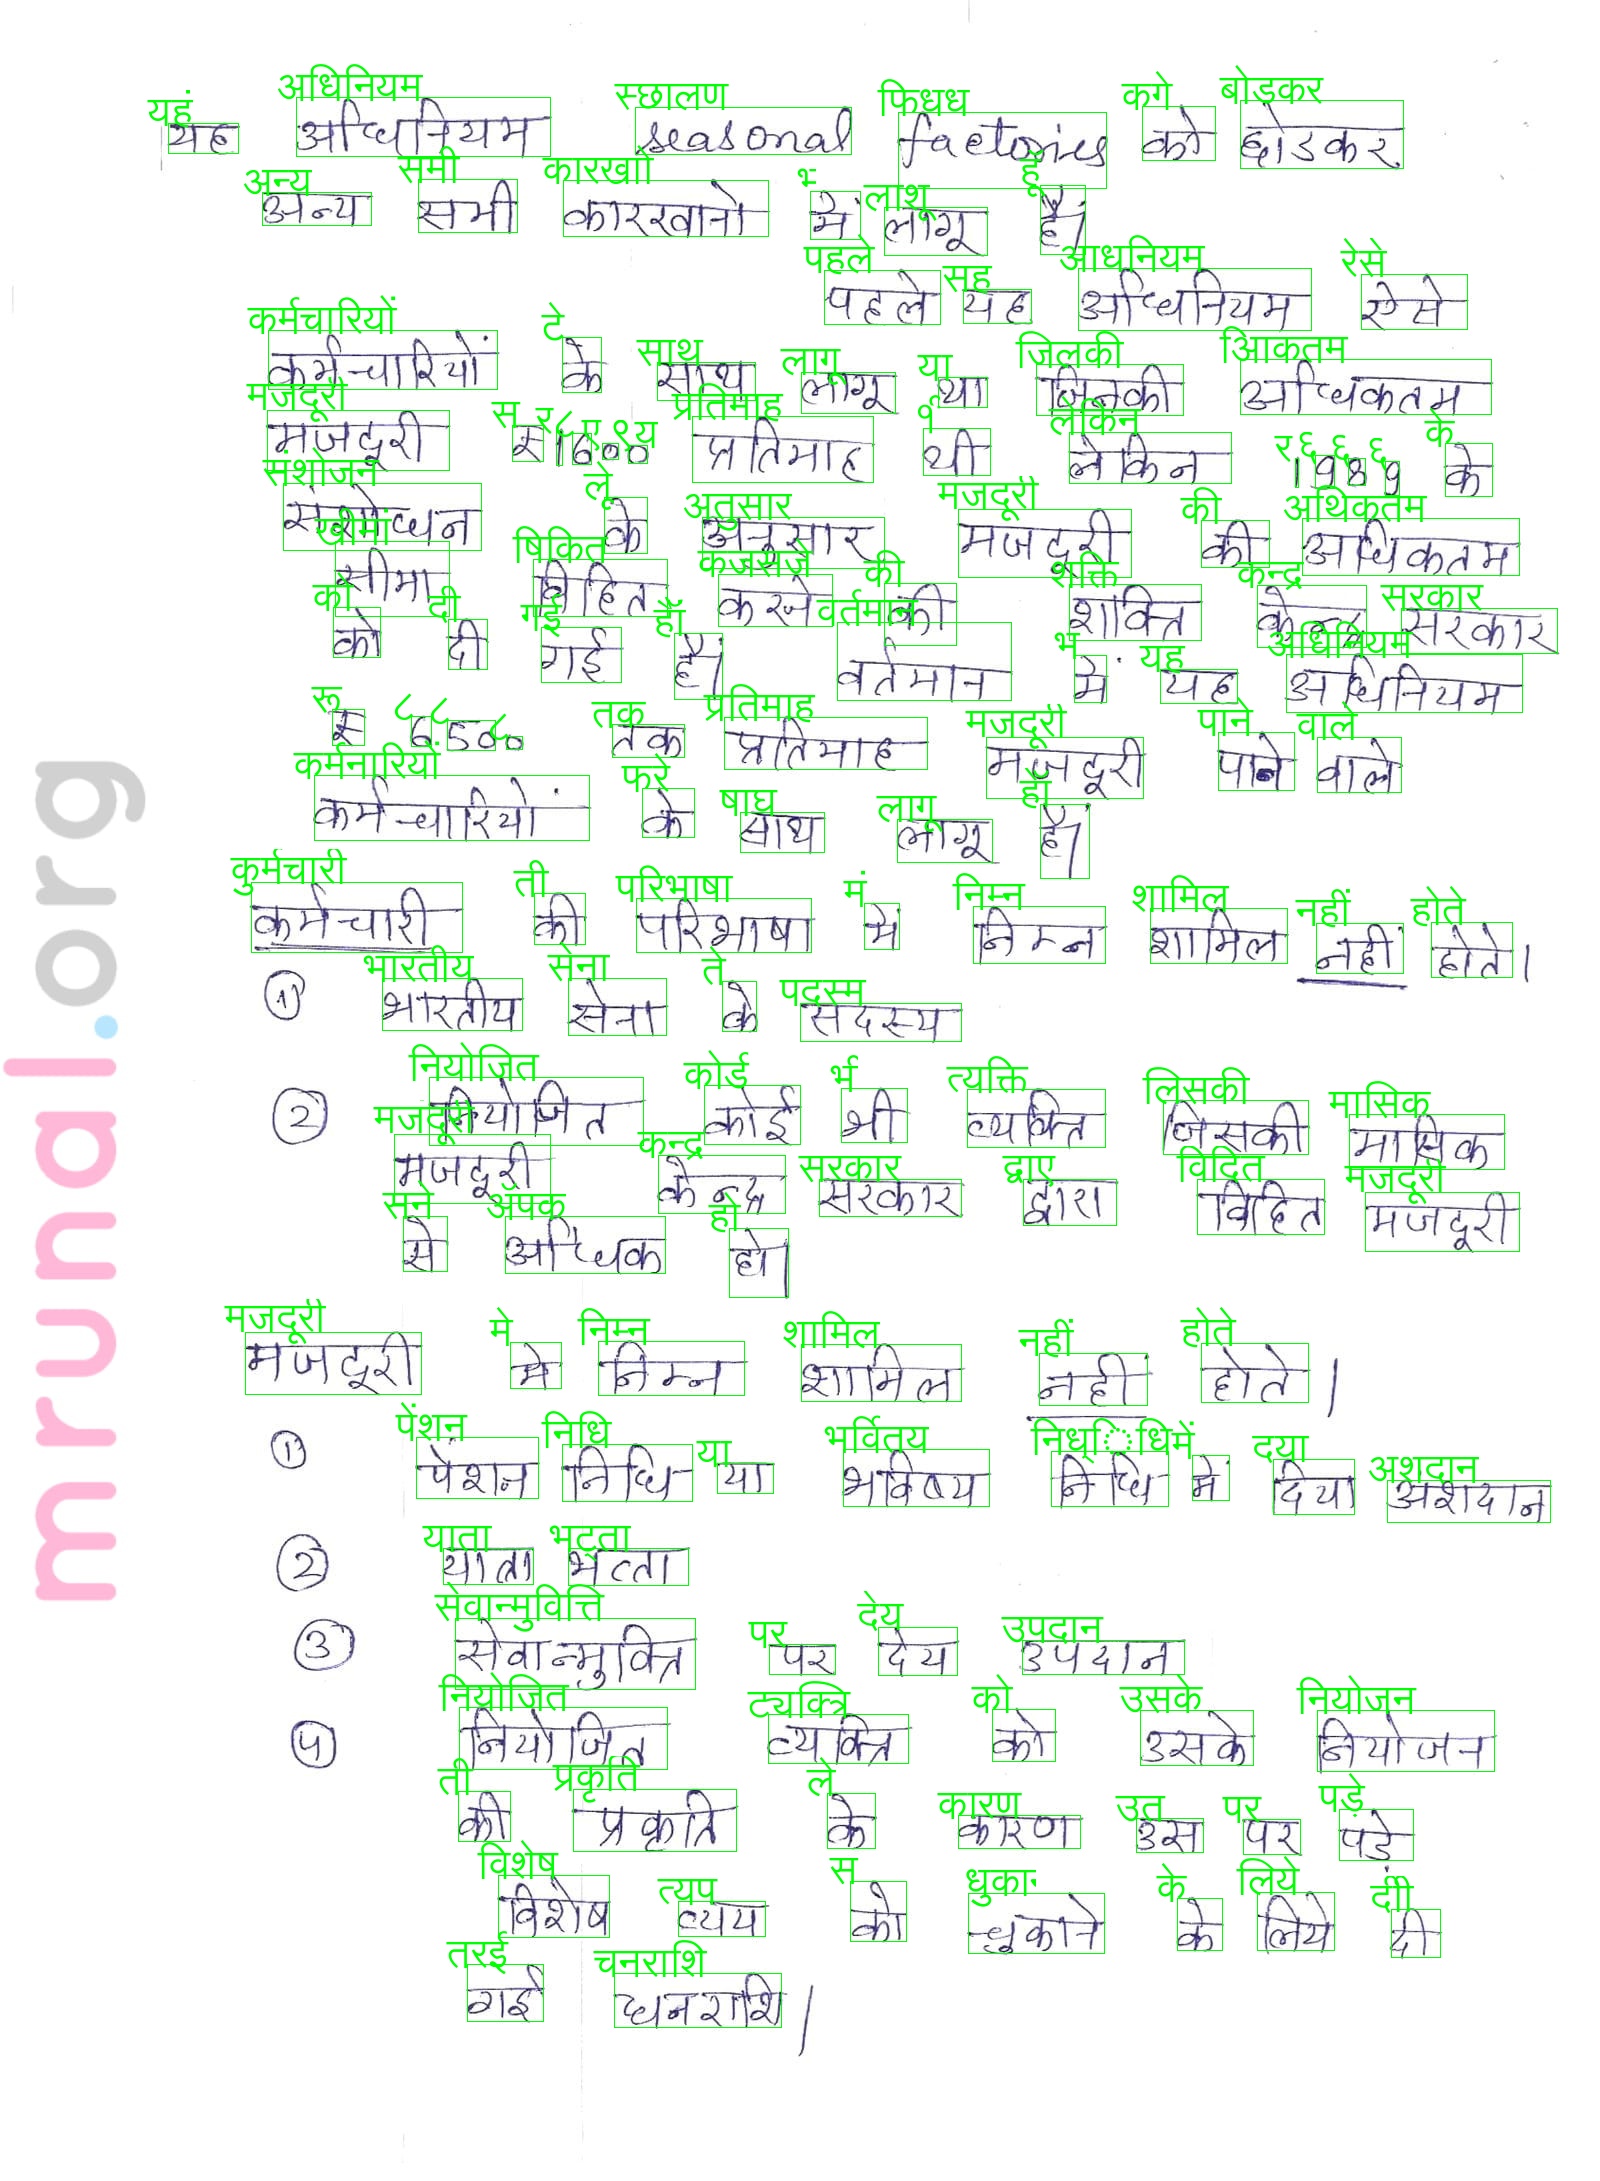 यहं अधिनियम स्छालण फिधध कगे बोडकर
यह अधिनियम seasonal factories को छोडकर
अन्य समी कारखाों लाशू हूँ
अन्य सभी कारखानो में लागू है।
पहले सह आधनियम रेसे
पहले यह अधिनियम ऐसे
कर्मचारियों टे साथ लागू या जिलकी आिकतम
कर्मचारियों के साथ लागू था जिनकी अधिकतम
मजदूरी स र८ए९य प्रतिमाह लेकिन र६६६ के
मजदूरी ₹1600 प्रतिमाह थी लेकिन 1989 के
संशोजन ले अतुसार मजदूरी की अथिकतम
संशोधन के अनुसार मजदूरी की अधिकतम
षिकित की शक्ति कन्द्र सरकार
सीमा विहित करने की शक्ति केन्द्र सरकार
की दी गई वर्तमान भ यह अधिनियम
को दी गई है। वर्तमान में यह अधिनियम
रू ८८८ तक प्रतिमाह मजदूरी पाने वाले
₹ 6500 तक प्रतिमाह मजदूरी पाने वाले
कर्मनारियों फरे षाघ लागू
कर्मचारियों के साथ लागू है।
कुर्मचारी ती परिभाषा मं निम्न शामिल नहीं होते
कर्मचारी की परिभाषा में निम्न शामिल नहीं होते।
भारतीय सेना ते पदस्म
① भारतीय सेना के सदस्य
नियोजित कोर्ड र्भ त्यक्ति लिसकी मासिक
② नियोजित कोई भी व्यक्ति जिसकी मासिक
मजदूरी कन्द्र सरकार द्वाए विदित मजदूरी
मजदूरी केन्द्र सरकार द्वारा विहित मजदूरी
सने अ‍ॅपक हो
से अधिक हो।
मजदूरी मे निम्न शामिल नहीं होते
मजदूरी मे निम्न शामिल नहीं होते।
पेंशन निधि या भर्वितय दया अशदान
① पेंशन निधि या भविष्य निधि में दिया अशदान
याता भट्ता
② यात्रा भत्ता
सेवान्मुवित्ति पर देय उपदान
③ सेवान्मुक्ति पर देय उपदान
नियोजित ट्यक्त्रि को उसके नियोजन
④ नियोजित व्यक्ति को उसके नियोजन
ती प्रकृति ले कारण उत पर पड़े
की प्रकृति के कारण उस पर पड़े
विशेष त्यप स धुका के लिये
विशेष व्यय को चुकाने के लिये दी
तरई चनराशि
गई धनराशि।
mrunal.org